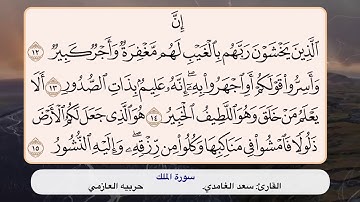 إِنَّ
ٱلَّذِينَ يَخْشَوْنَ رَبَّهُم بِٱلْغَيْبِ لَهُم مَّغْفِرَةٌ وَأَجْرٌ كَبِيرٌ ١٢
وَأَسِرُّوا۟ قَوْلَكُمْ أَوِ ٱجْهَرُوا۟ بِهِۦٓ إِنَّهُۥ عَلِيمٌۢ بِذَاتِ ٱلصُّدُورِ ١٣ أَلَا
يَعْلَمُ مَنْ خَلَقَ وَهُوَ ٱللَّطِيفُ ٱلْخَبِيرُ ١٤ هُوَ ٱلَّذِى جَعَلَ لَكُمُ ٱلْأَرْضَ
ذَلُولًا فَٱمْشُوا۟ فِى مَنَاكِبِهَا وَكُلُوا۟ مِن رِّزْقِهِۦ وَإِلَيْهِ ٱلنُّشُورُ ١٥
سورة الملك
القارئ: سعد الغامدي. حربيه العازمي